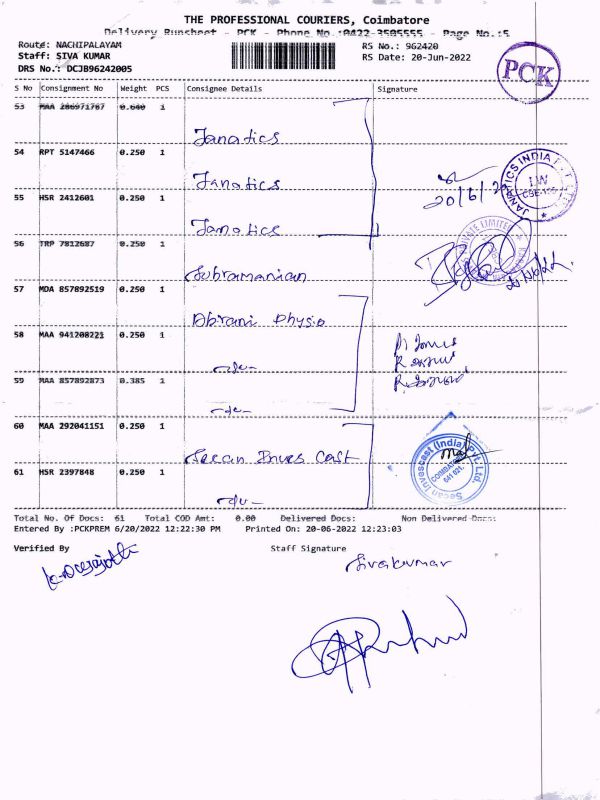 THE PROFESSIONAL COURIERS, Coimbatore
Delivery Runsheet - PCK - Phone No.:0422-3505555 - Page No.:5
Route: NACHIPALAYAM
RS No.: 962420
Staff: SIVA KUMAR
RS Date: 20-Jun-2022
DRS No.: DCJB96242005
PCK
S No Consignment No Weight PCS Consignee Details Signature
53 MAA 286971767 0.640 1
Janatics
54 RPT 5147466 0.250 1
Janatics
55 HSR 2412601 0.250 1
20/6/22
Janatics
56 TRP 7812687 0.250 1
Subramanian
57 MDA 857892519 0.250 1
Abirami Physio
58 MAA 941208221 0.250 1
-do-
59 MAA 857892873 0.385 1
-do-
60 MAA 292041151 0.250 1
Secan Inves Cast
61 HSR 2397848 0.250 1
-do-
JANATICS INDIA PVT LTD
Secan Invescast (India) Pvt. Ltd.
COIMBATORE
641 021.
Total No. Of Docs: 61 Total COD Amt: 0.00 Delivered Docs: Non Delivered Docs:
Entered By :PCKPREM 6/20/2022 12:22:30 PM Printed On: 20-06-2022 12:23:03
Verified By
Staff Signature
Sivakumar